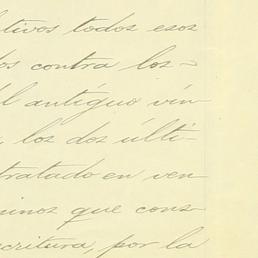 ltivos todos esos
os contra los-
l antiguo vin
los dos últi-
tratado en ven
minos que cons
scritura, por la